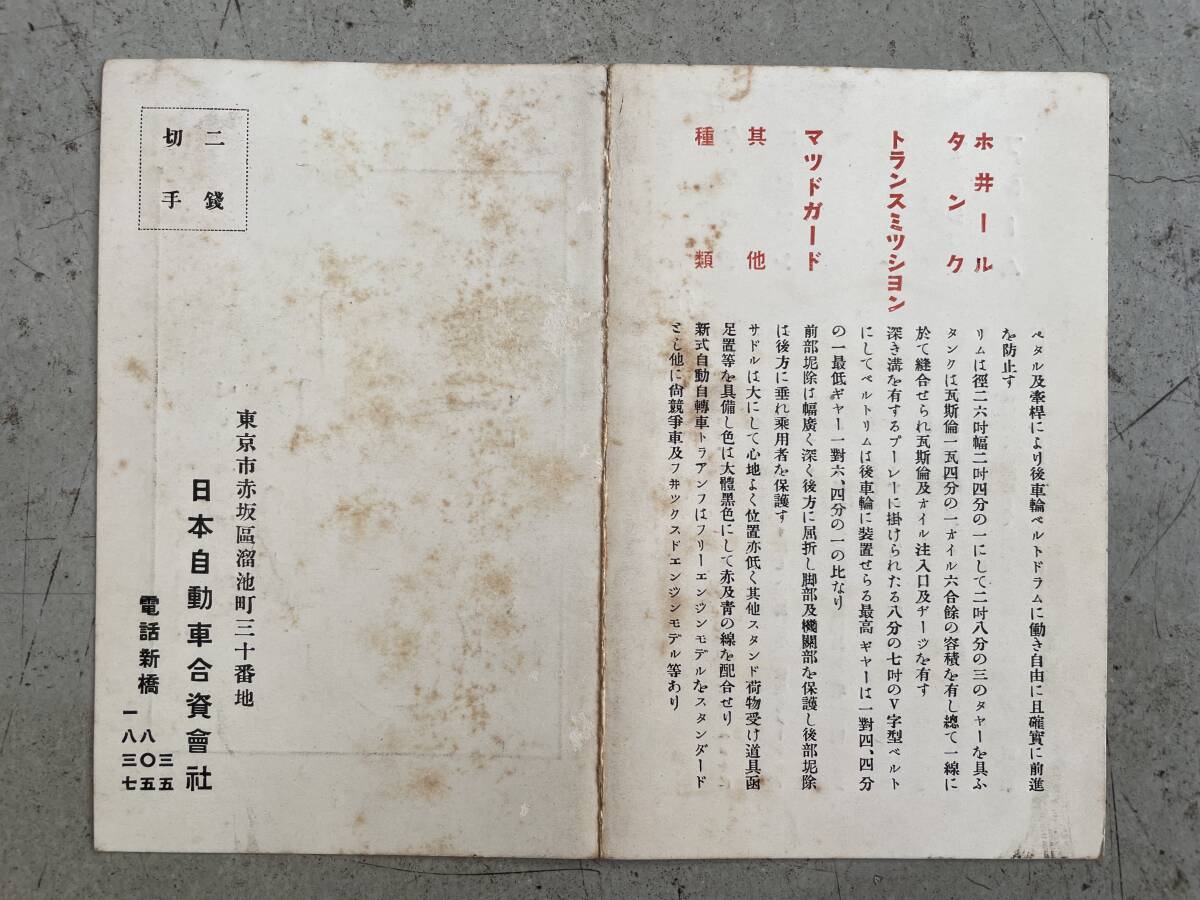 ペタル及牽桿により後車輪ベルトドラムに働き自由に且確實に前進
を防止す
ホ井ール
リムは徑二六吋幅二吋四分の一にして二吋八分の三のタヤーを具ふ
タンク
タンクは瓦斯倫一瓦四分の一オイル六合餘の容積を有し總て一線に
於て縫合せられ瓦斯倫及オイル注入口及ヂーツを有す
トランスミツシヨン
深き溝を有するプーレーに掛けられたる八分の七吋のV字型ベルト
にしてベルトリムは後車輪に装置せらる最高ギヤーは一對四、四分
の一最低ギヤー一對六、四分の一の比なり
マツドガード
前部坭除は幅廣く深く後方に屈折し脚部及機關部を保護し後部坭除
は後方に垂れ乗用者を保護す
其他
サドルは大にして心地よく位置亦低く其他スタンド荷物受け道具函
足置等を具備し色は大體黑色にして赤及青の線を配合せり
種類
新式自動自轉車トラアンフはフリーエンジンモデルをスタンダード
とし他に尙競爭車及フ井ツクスドエンジンモデル等あり
二錢
切手
東京市赤坂區溜池町三十番地
日本自動車合資會社
電話新橋
三五
八〇五
一八三七